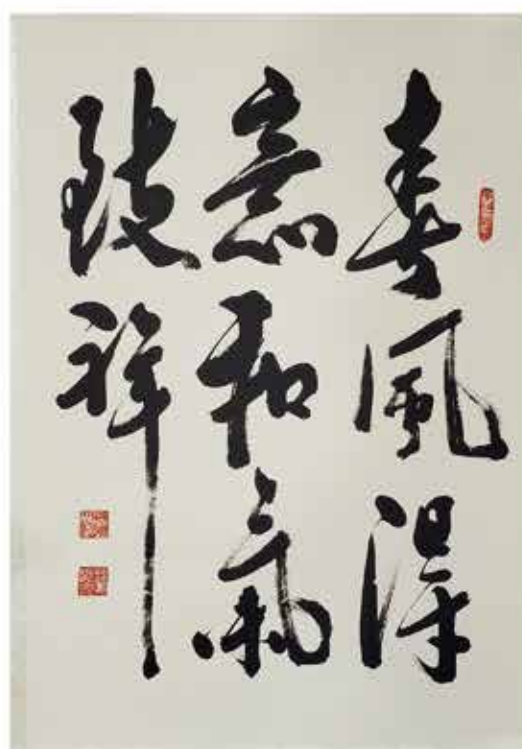 春風得
意和氣
致祥